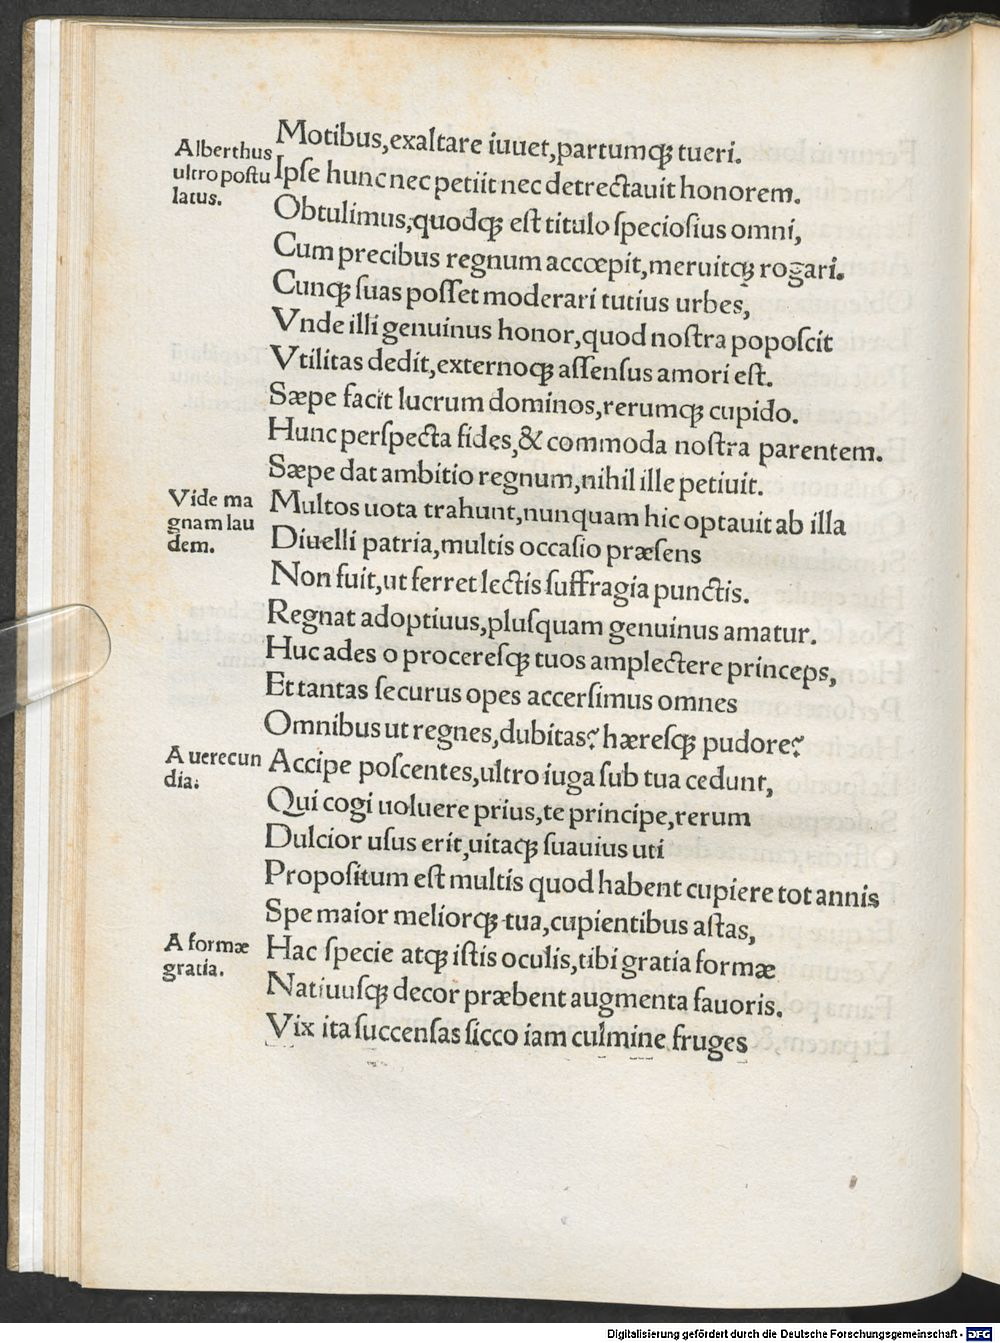 Motibus,exaltare iuuet,partumqꝫ tueri.
Alberthus
ultro postu
latus.
Ipſe hunc nec petiit nec detrectauit honorem.
Obtulimus,quodqꝫ eſt titulo ſpecioſius omni,
Cum precibus regnum accœpit,meruitqꝫ rogari.
Cunqꝫ ſuas poſſet moderari tutius urbes,
Vnde illi genuinus honor,quod noſtra popoſcit
Vtilitas dedit,externoqꝫ aſſenſus amori eſt.
Sæpe facit lucrum dominos,rerumqꝫ cupido.
Hunc perſpecta fides,& commoda noſtra parentem.
Sæpe dat ambitio regnum,nihil ille petiuit.
Vide ma
gnam lau
dem.
Multos uota trahunt,nunquam hic optauit ab illa
Diuelli patria,multis occaſio præſens
Non fuit,ut ferret lectis ſuffragia punctis.
Regnat adoptiuus,pluſquam genuinus amatur.
Huc ades o procereſqꝫ tuos amplectere princeps,
Et tantas ſecurus opes accerſimus omnes
Omnibus ut regnes,dubitas? hæreſqꝫ pudore?
A uerecun
dia.
Accipe poſcentes,ultro iuga ſub tua cedunt,
Qui cogi uoluere prius,te principe,rerum
Dulcior uſus erit,uitaqꝫ ſuauius uti
Propoſitum eſt multis quod habent cupiere tot annis
Spe maior meliorqꝫ tua,cupientibus aſtas,
A formæ
gratia.
Hac ſpecie atqꝫ iſtis oculis,tibi gratia formæ
Natiuuſqꝫ decor præbent augmenta fauoris.
Vix ita ſuccenſas ſicco iam culmine fruges
Digitalisierung gefördert durch die Deutsche Forschungsgemeinschaft - DFG